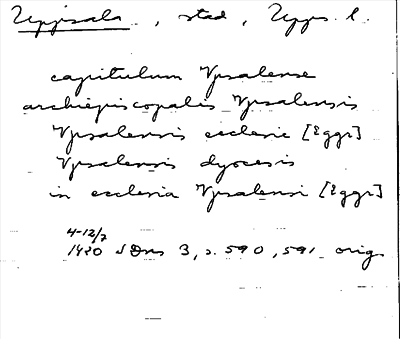 Uppsala, stad, Upps. l.
capitulum Vpsalense
archiepiscopalis Vpsalensis
Vpsalensis ecclesie [Eggr]
Vpsalensis dyocesis
in ecclesia Vpsalensi [Eggr]
4-12/7
1420 SDns 3, s. 590, 591 orig.